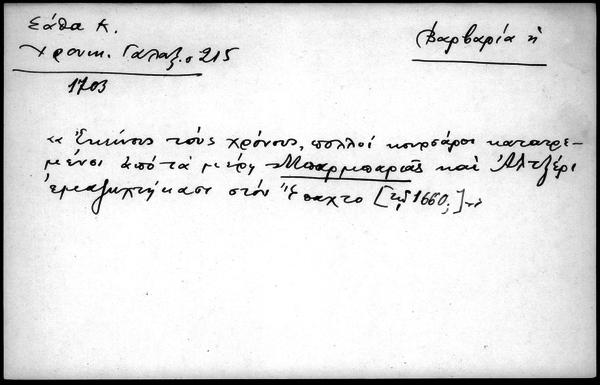 Σάθα Κ.
Χρονικ. Γαλαξ. σ 215
1703
Βαρβαρία ἡ
«Ἐκείνους τούς χρόνους, πολλοί κουρσάροι κατατρε-
μένοι ἀπό τά μέρη Μπαρμπαριᾶς καί Ἀλτζέρι
ἐμαζωχτήκασι στόν Ἔπαχτο [τῷ 1660;]»